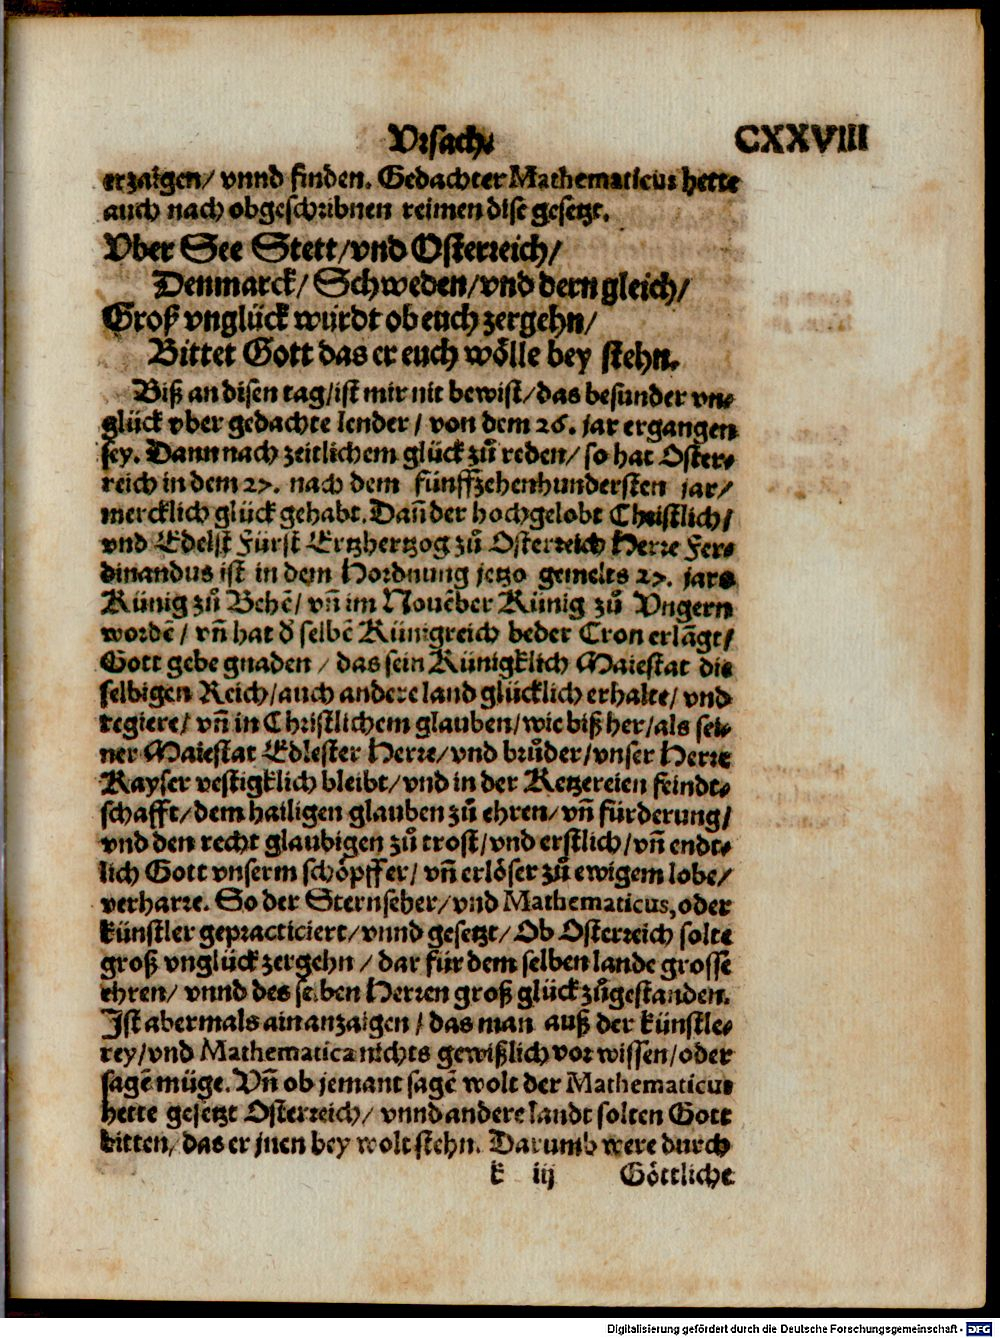 Vrsach.
CXXVIII
erzaigen/ vnnd finden. Gedachter Mathematicus hette
auch nach obgeschribnen reimen dise gesetzt.
Vber See Stett/vnd Osterreich/
Denmarck/ Schweden/vnd dern gleich/
Groß vnglück würdt ob euch zergehn/
Bittet Gott das er euch wölle bey stehn.
Biß an disen tag/ist mir nit bewist/das besunder vn⸗
glück vber gedachte lender/ von dem 26. jar ergangen
sey. Dann nach zeitlichem glück zů reden/ so hat Oster⸗
reich in dem 27. nach dem fünffzehenhundersten jar/
mercklich glück gehabt. Dañ der hochgelobt Christlich/
vnd Edelst Fürst Ertzhertzog zů Osterreich Herre Fer⸗
dinandus ist in dem Hordnung jetzo gemelts 27. jars
Künig zů Behē/ vñ im Nouēber Künig zů Vngern
wordē/ vñ hat d̄ selbē Künigreich beder Cron erlāgt/
Gott gebe gnaden/ das sein Künigklich Maiestat die
selbigen Reich/auch andere land glücklich erhalte/ vnd
regiere/ vñ in Christlichem glauben/wie biß her/als sei⸗
ner Maiestat Edlester Herre/vnd brůder/vnser Herre
Kayser vestigklich bleibt/vnd in der Ketzereien feindt⸗
schafft/dem hailigen glauben zů ehren/vñ fürderung/
vnd den recht glaubigen zů trost/vnd erstlich/vñ endt⸗
lich Gott vnserm schöpffer/ vñ erlöser zů ewigem lobe/
verharre. So der Sternseher/vnd Mathematicus, oder
künstler gepracticiert/vnnd gesetzt/ Ob Osterreich solte
groß vnglück zergehn/ dar für dem selben lande grosse
ehren/ vnnd des selben Herren groß glück zůgestanden.
Ist abermals ain anzaigen/ das man auß der künstle⸗
rey/vnd Mathematica nichts gewißlich vor wissen/oder
sagē müge. Vñ ob jemant sagē wolt der Mathematicus
hette gesetzt Osterreich/ vnnd andere landt solten Gott
bitten/ das er jnen bey wolt stehn. Darumb were durch
k iij Göttliche